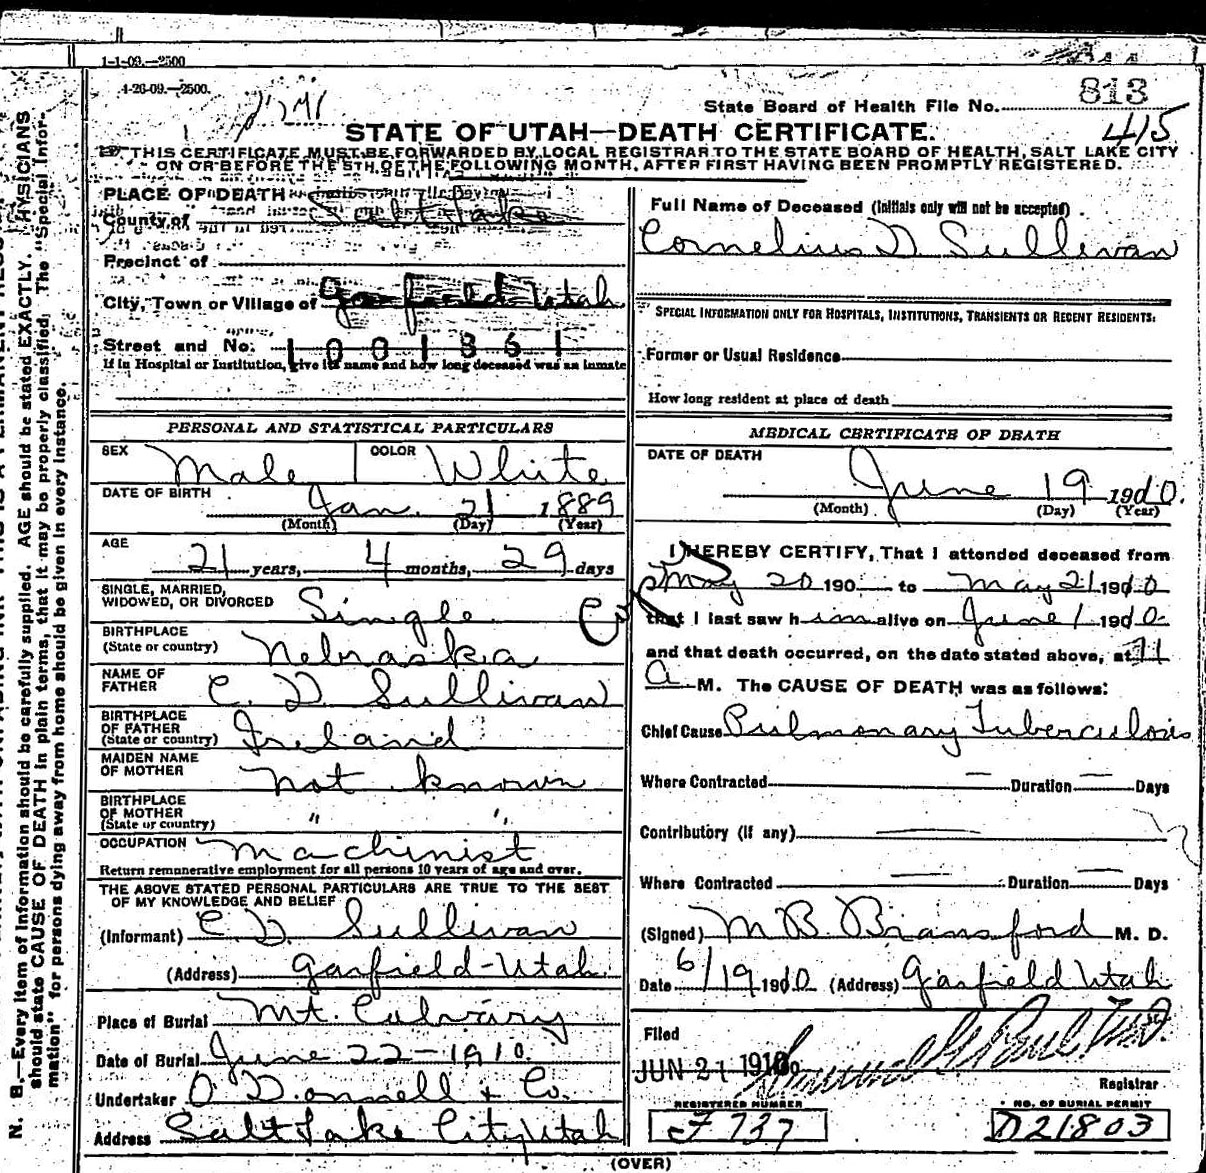 1-1-09.—2500
4-26-09.—2500.
State Board of Health File No. 813
415
STATE OF UTAH—DEATH CERTIFICATE.
THIS CERTIFICATE MUST BE FORWARDED BY LOCAL REGISTRAR TO THE STATE BOARD OF HEALTH, SALT LAKE CITY
ON OR BEFORE THE 5TH OF THE FOLLOWING MONTH, AFTER FIRST HAVING BEEN PROMPTLY REGISTERED.
PLACE OF DEATH
County of Salt Lake
Precinct of
City, Town or Village of Garfield Utah
Street and No. 1001861
If in Hospital or Institution, give its name and how long deceased was an inmate
Full Name of Deceased (Initials only will not be accepted)
Cornelius D Sullivan
SPECIAL INFORMATION ONLY FOR HOSPITALS, INSTITUTIONS, TRANSIENTS OR RECENT RESIDENTS.
Former or Usual Residence
How long resident at place of death
PERSONAL AND STATISTICAL PARTICULARS
SEX Male COLOR White
DATE OF BIRTH Jan. 21 1889
(Month) (Day) (Year)
AGE
21 years, 4 months, 29 days
SINGLE, MARRIED,
WIDOWED, OR DIVORCED Single
BIRTHPLACE
(State or country) Nebraska
NAME OF
FATHER C. D. Sullivan
BIRTHPLACE
OF FATHER
(State or country) Ireland
MAIDEN NAME
OF MOTHER not known
BIRTHPLACE
OF MOTHER
(State or country) " "
OCCUPATION Machinist
Return remunerative employment for all persons 10 years of age and over.
THE ABOVE STATED PERSONAL PARTICULARS ARE TRUE TO THE BEST
OF MY KNOWLEDGE AND BELIEF
(Informant) C. D. Sullivan
(Address) Garfield-Utah.
Place of Burial Mt. Calvary
Date of Burial June 22-1910.
Undertaker O'Donnell & Co.
Address Salt Lake City, Utah
MEDICAL CERTIFICATE OF DEATH
DATE OF DEATH
June 19 1910.
(Month) (Day) (Year)
I HEREBY CERTIFY, That I attended deceased from
May 20 190 to May 21 1910
that I last saw him alive on June 1 1910
and that death occurred, on the date stated above, at 11
A M. The CAUSE OF DEATH was as follows:
Chief Cause Pulmonary Tuberculosis
Where Contracted — Duration — Days
Contributory (if any) —
Where Contracted — Duration — Days
(Signed) M B Bransford M. D.
Date 6/19 1910 (Address) Garfield Utah
Filed
JUN 21 1910
Registrar
REGISTERED NUMBER NO. OF BURIAL PERMIT
F 737 D21803
(OVER)
N. B.—Every item of information should be carefully supplied. AGE should be stated EXACTLY. PHYSICIANS
should state CAUSE OF DEATH in plain terms, that it may be properly classified. The "Special Infor-
mation" for persons dying away from home should be given in every instance.